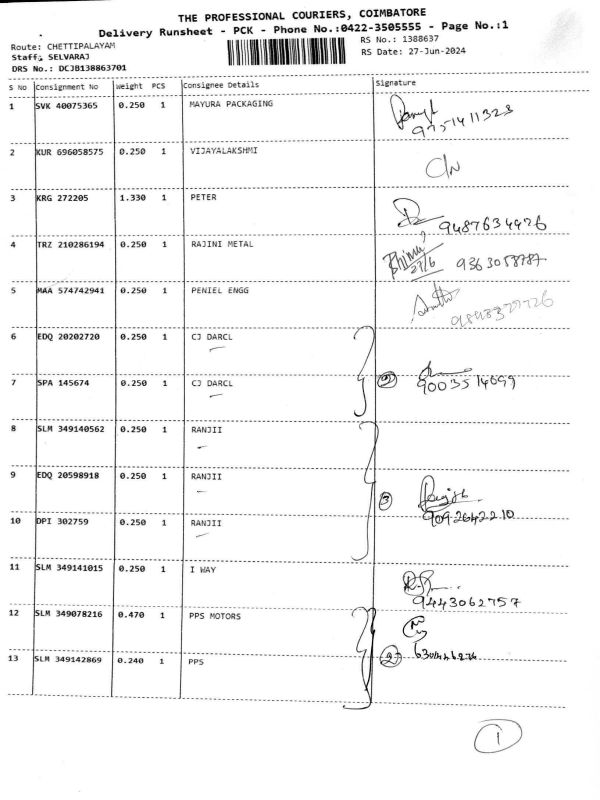 THE PROFESSIONAL COURIERS, COIMBATORE
Delivery Runsheet - PCK - Phone No.:0422-3505555 - Page No.:1
Route: CHETTIPALAYAM
RS No.: 1388637
Staff: SELVARAJ
RS Date: 27-Jun-2024
DRS No.: DCJB138863701
S No Consignment No Weight PCS Consignee Details Signature
1 SVK 40075365 0.250 1 MAYURA PACKAGING
9751411323
2 KUR 696058575 0.250 1 VIJAYALAKSHMI
C/N
3 KRG 272205 1.330 1 PETER
9487634926
4 TRZ 210286194 0.250 1 RAJINI METAL
27/6 9363058787
5 MAA 574742941 0.250 1 PENIEL ENGG
6 EDQ 20202720 0.250 1 CJ DARCL
2
7 SPA 145674 0.250 1 CJ DARCL
9003514699
8 SLM 349140562 0.250 1 RANJII
9 EDQ 20598918 0.250 1 RANJII
3
10 DPI 302759 0.250 1 RANJII
9092642210
11 SLM 349141015 0.250 1 I WAY
9443062757
12 SLM 349078216 0.470 1 PPS MOTORS
13 SLM 349142869 0.240 1 PPS
2
1